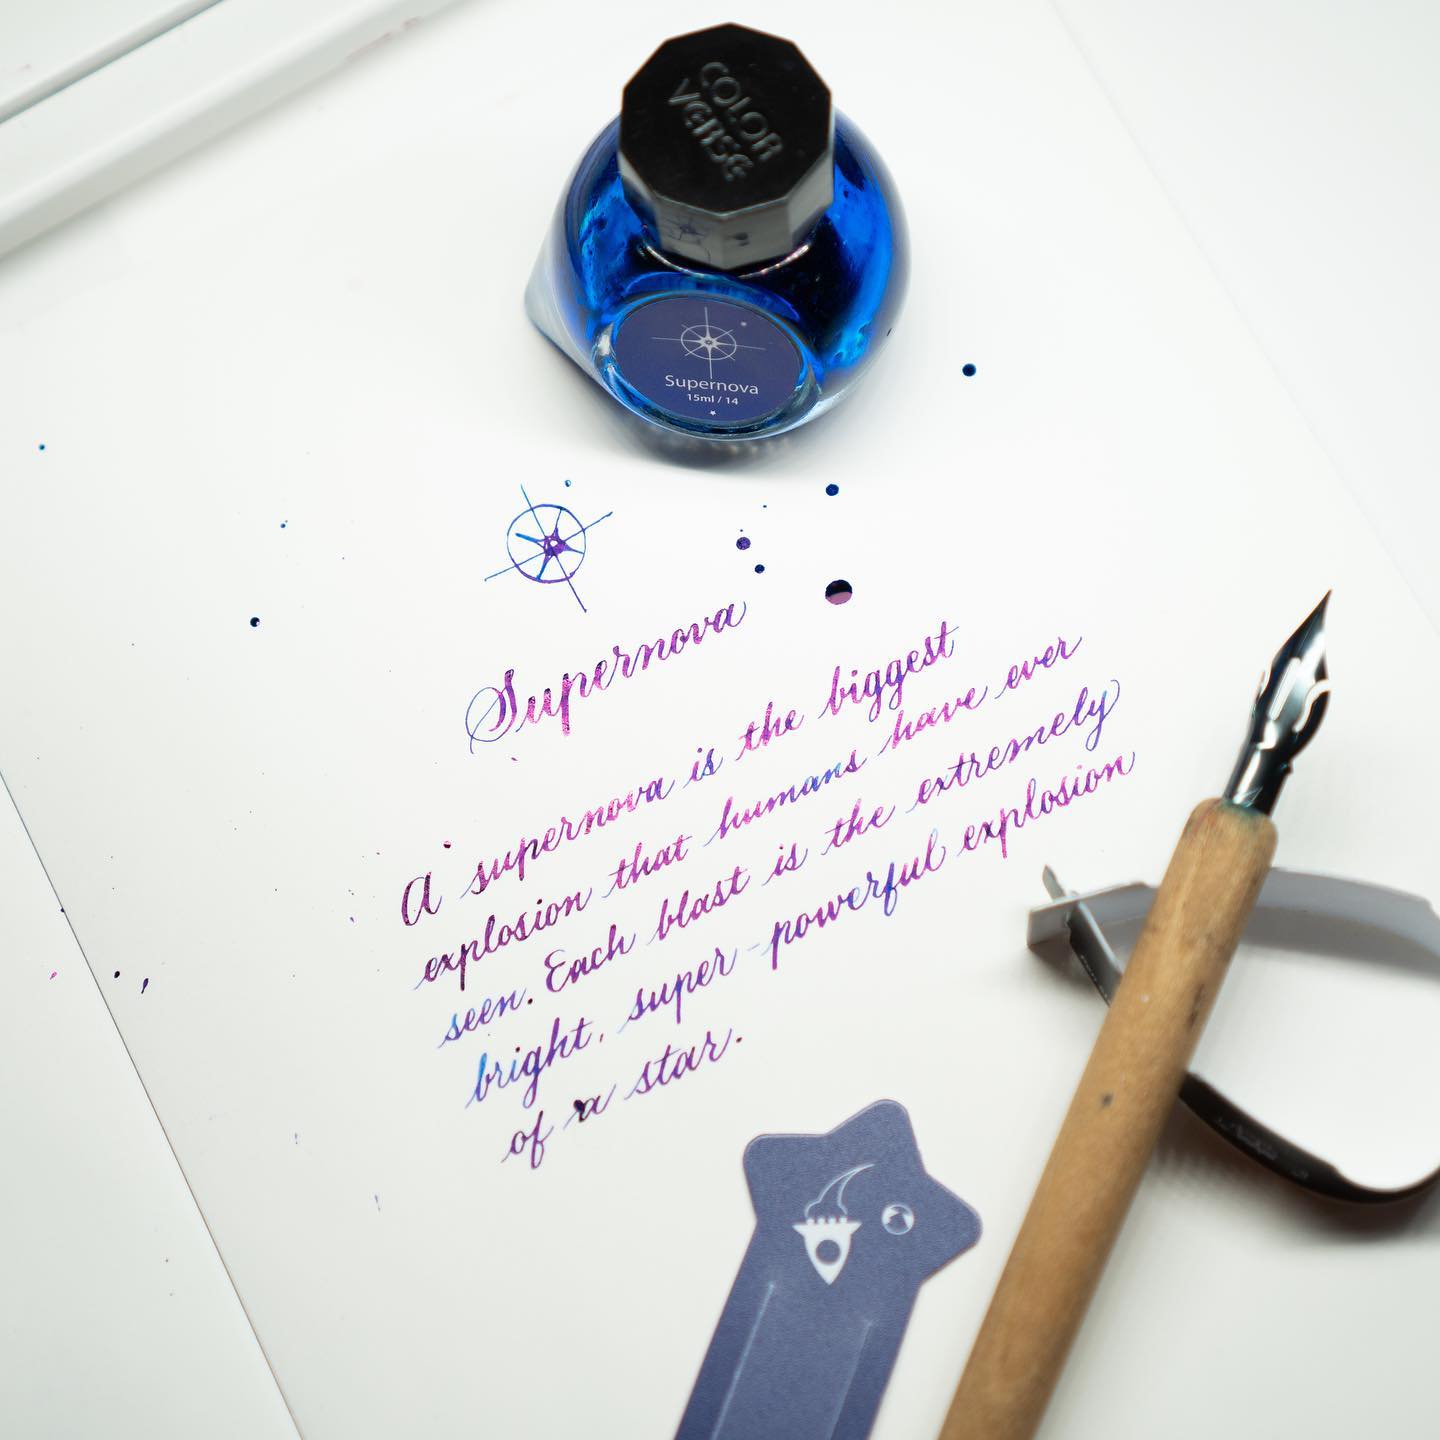 COLOR
VERSE
Supernova
15ml / 14
Supernova
A supernova is the biggest
explosion that humans have ever
seen. Each blast is the extremely
bright, super-powerful explosion
of a star.